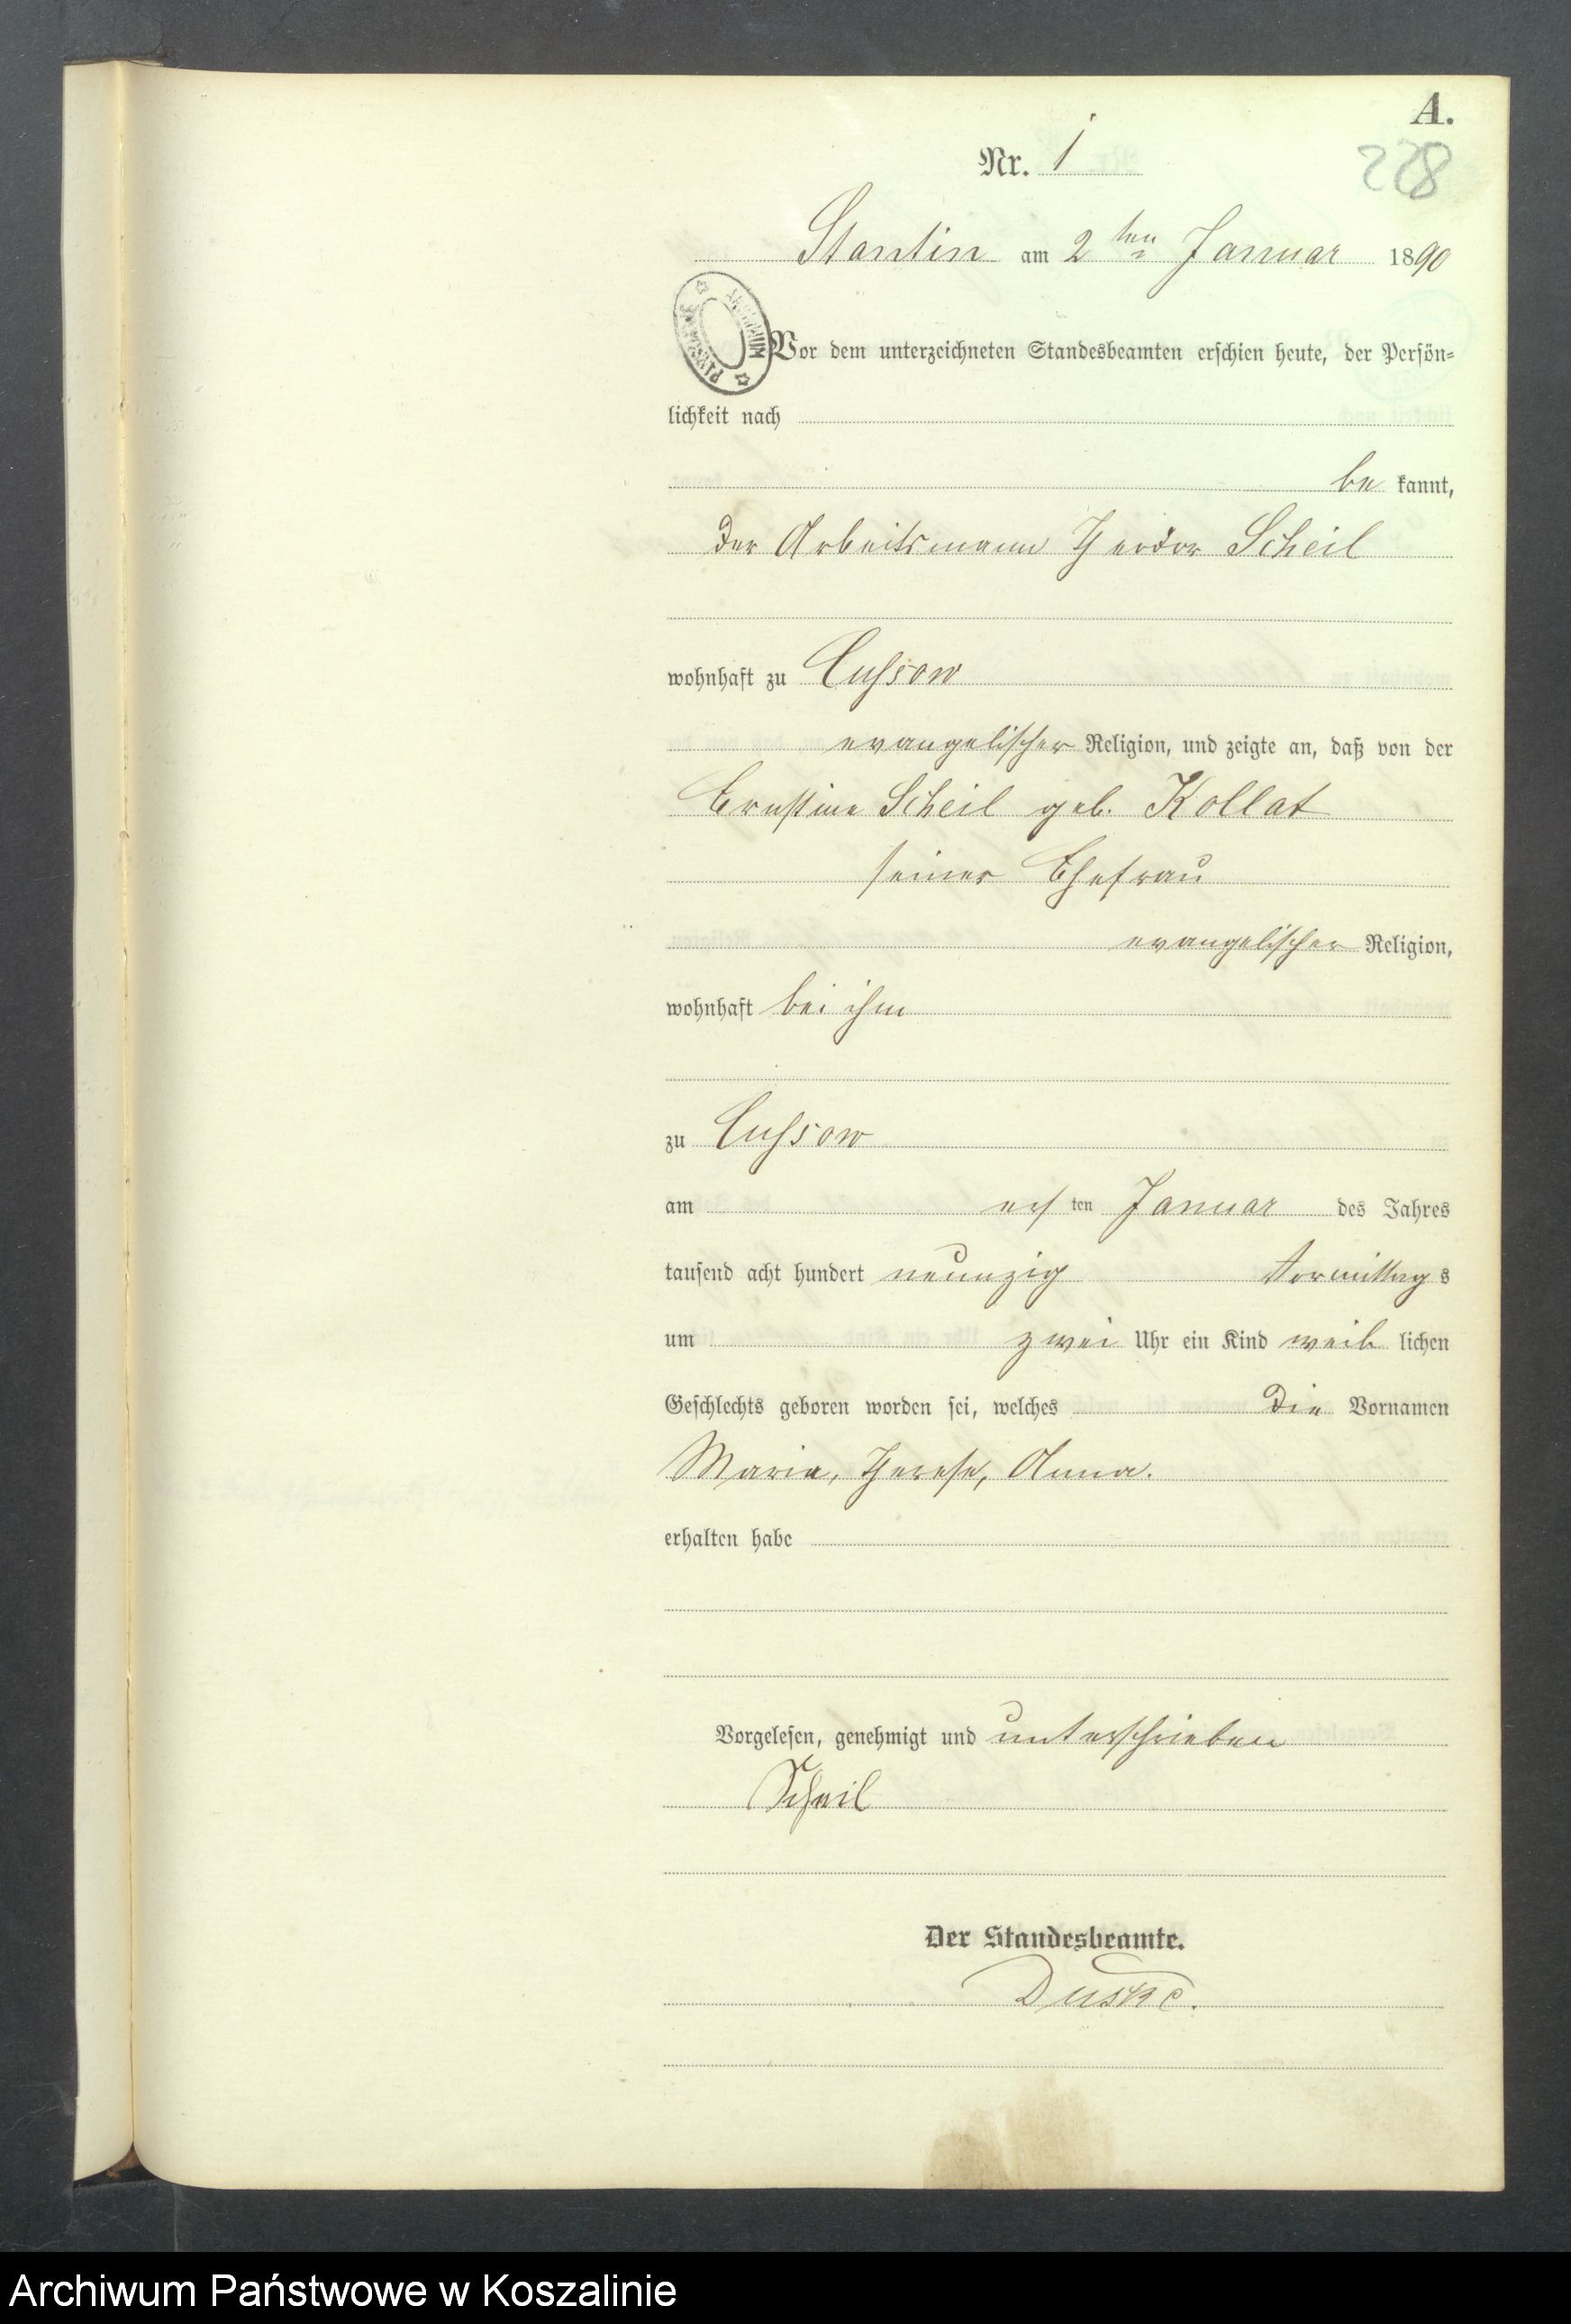 A.
Nr. 1
228
Stantin am 2 ten Januar 1890
ARCHIWUM PAŃSTWOWE
Vor dem unterzeichneten Standesbeamten erschien heute, der Persön=
lichkeit nach
be kannt,
der Arbeitsmann Theodor Scheil
wohnhaft zu Cussow
evangelischer Religion, und zeigte an, daß von der
Ernstine Scheil geb. Kollat
seiner Ehefrau
evangelischer Religion,
wohnhaft bei ihm
zu Cussow
am ers ten Januar des Jahres
tausend acht hundert neunzig Vormittag s
um zwei Uhr ein Kind weib lichen
Geschlechts geboren worden sei, welches die Vornamen
Maria, Therese, Anna.
erhalten habe
Vorgelesen, genehmigt und unterschrieben
Scheil
Der Standesbeamte.
Archiwum Państwowe w Koszalinie